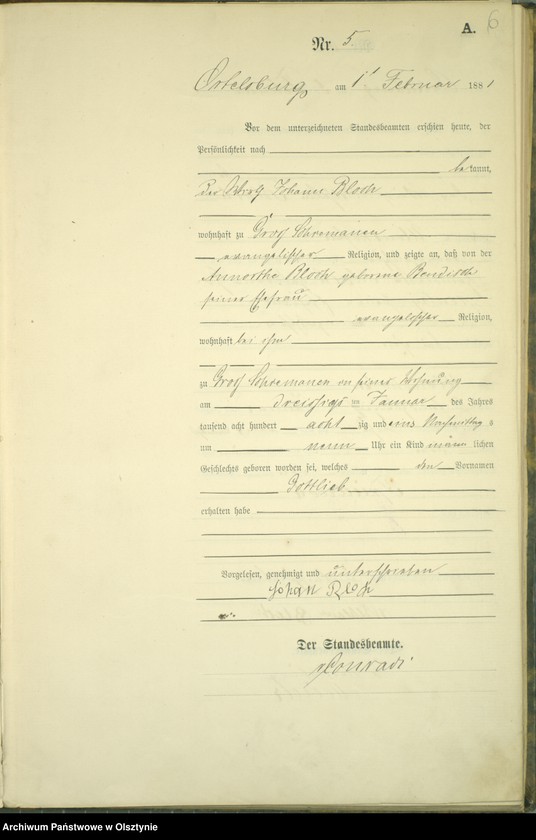 A. 6
Nr. 5.
Ortelsburg am 1t Februar 1881
Vor dem unterzeichneten Standesbeamten erschien heute, der
Persönlichkeit nach
bekannt,
der Johann Bloch
wohnhaft zu Groß Schiemanen
evangelischer Religion, und zeigte an, daß von der
Bloch geborene
seiner Ehefrau
evangelischer Religion,
wohnhaft bei ihm
zu Groß Schiemanen in seiner Wohnung
am dreißigsten Januar des Jahres
tausend acht hundert achtzig und eins Nachmittags
um neun Uhr ein Kind männlichen
Geschlechts geboren worden sei, welches den Vornamen
Gottlieb
erhalten habe
Vorgelesen, genehmigt und unterschrieben
Johan Bloch
Der Standesbeamte.
Conradi
Archiwum Państwowe w Olsztynie